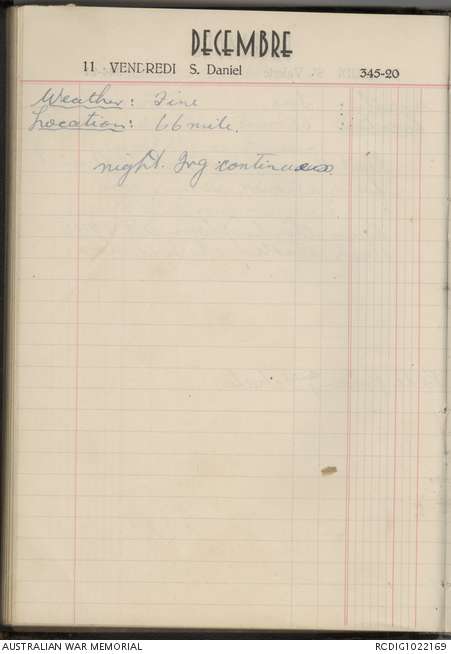 DECEMBRE
11 VENDREDI S. Daniel 345-20
Weather: Fine
Location: 66 mile.
night. Trg continues.
AUSTRALIAN WAR MEMORIAL RCDIG1022169